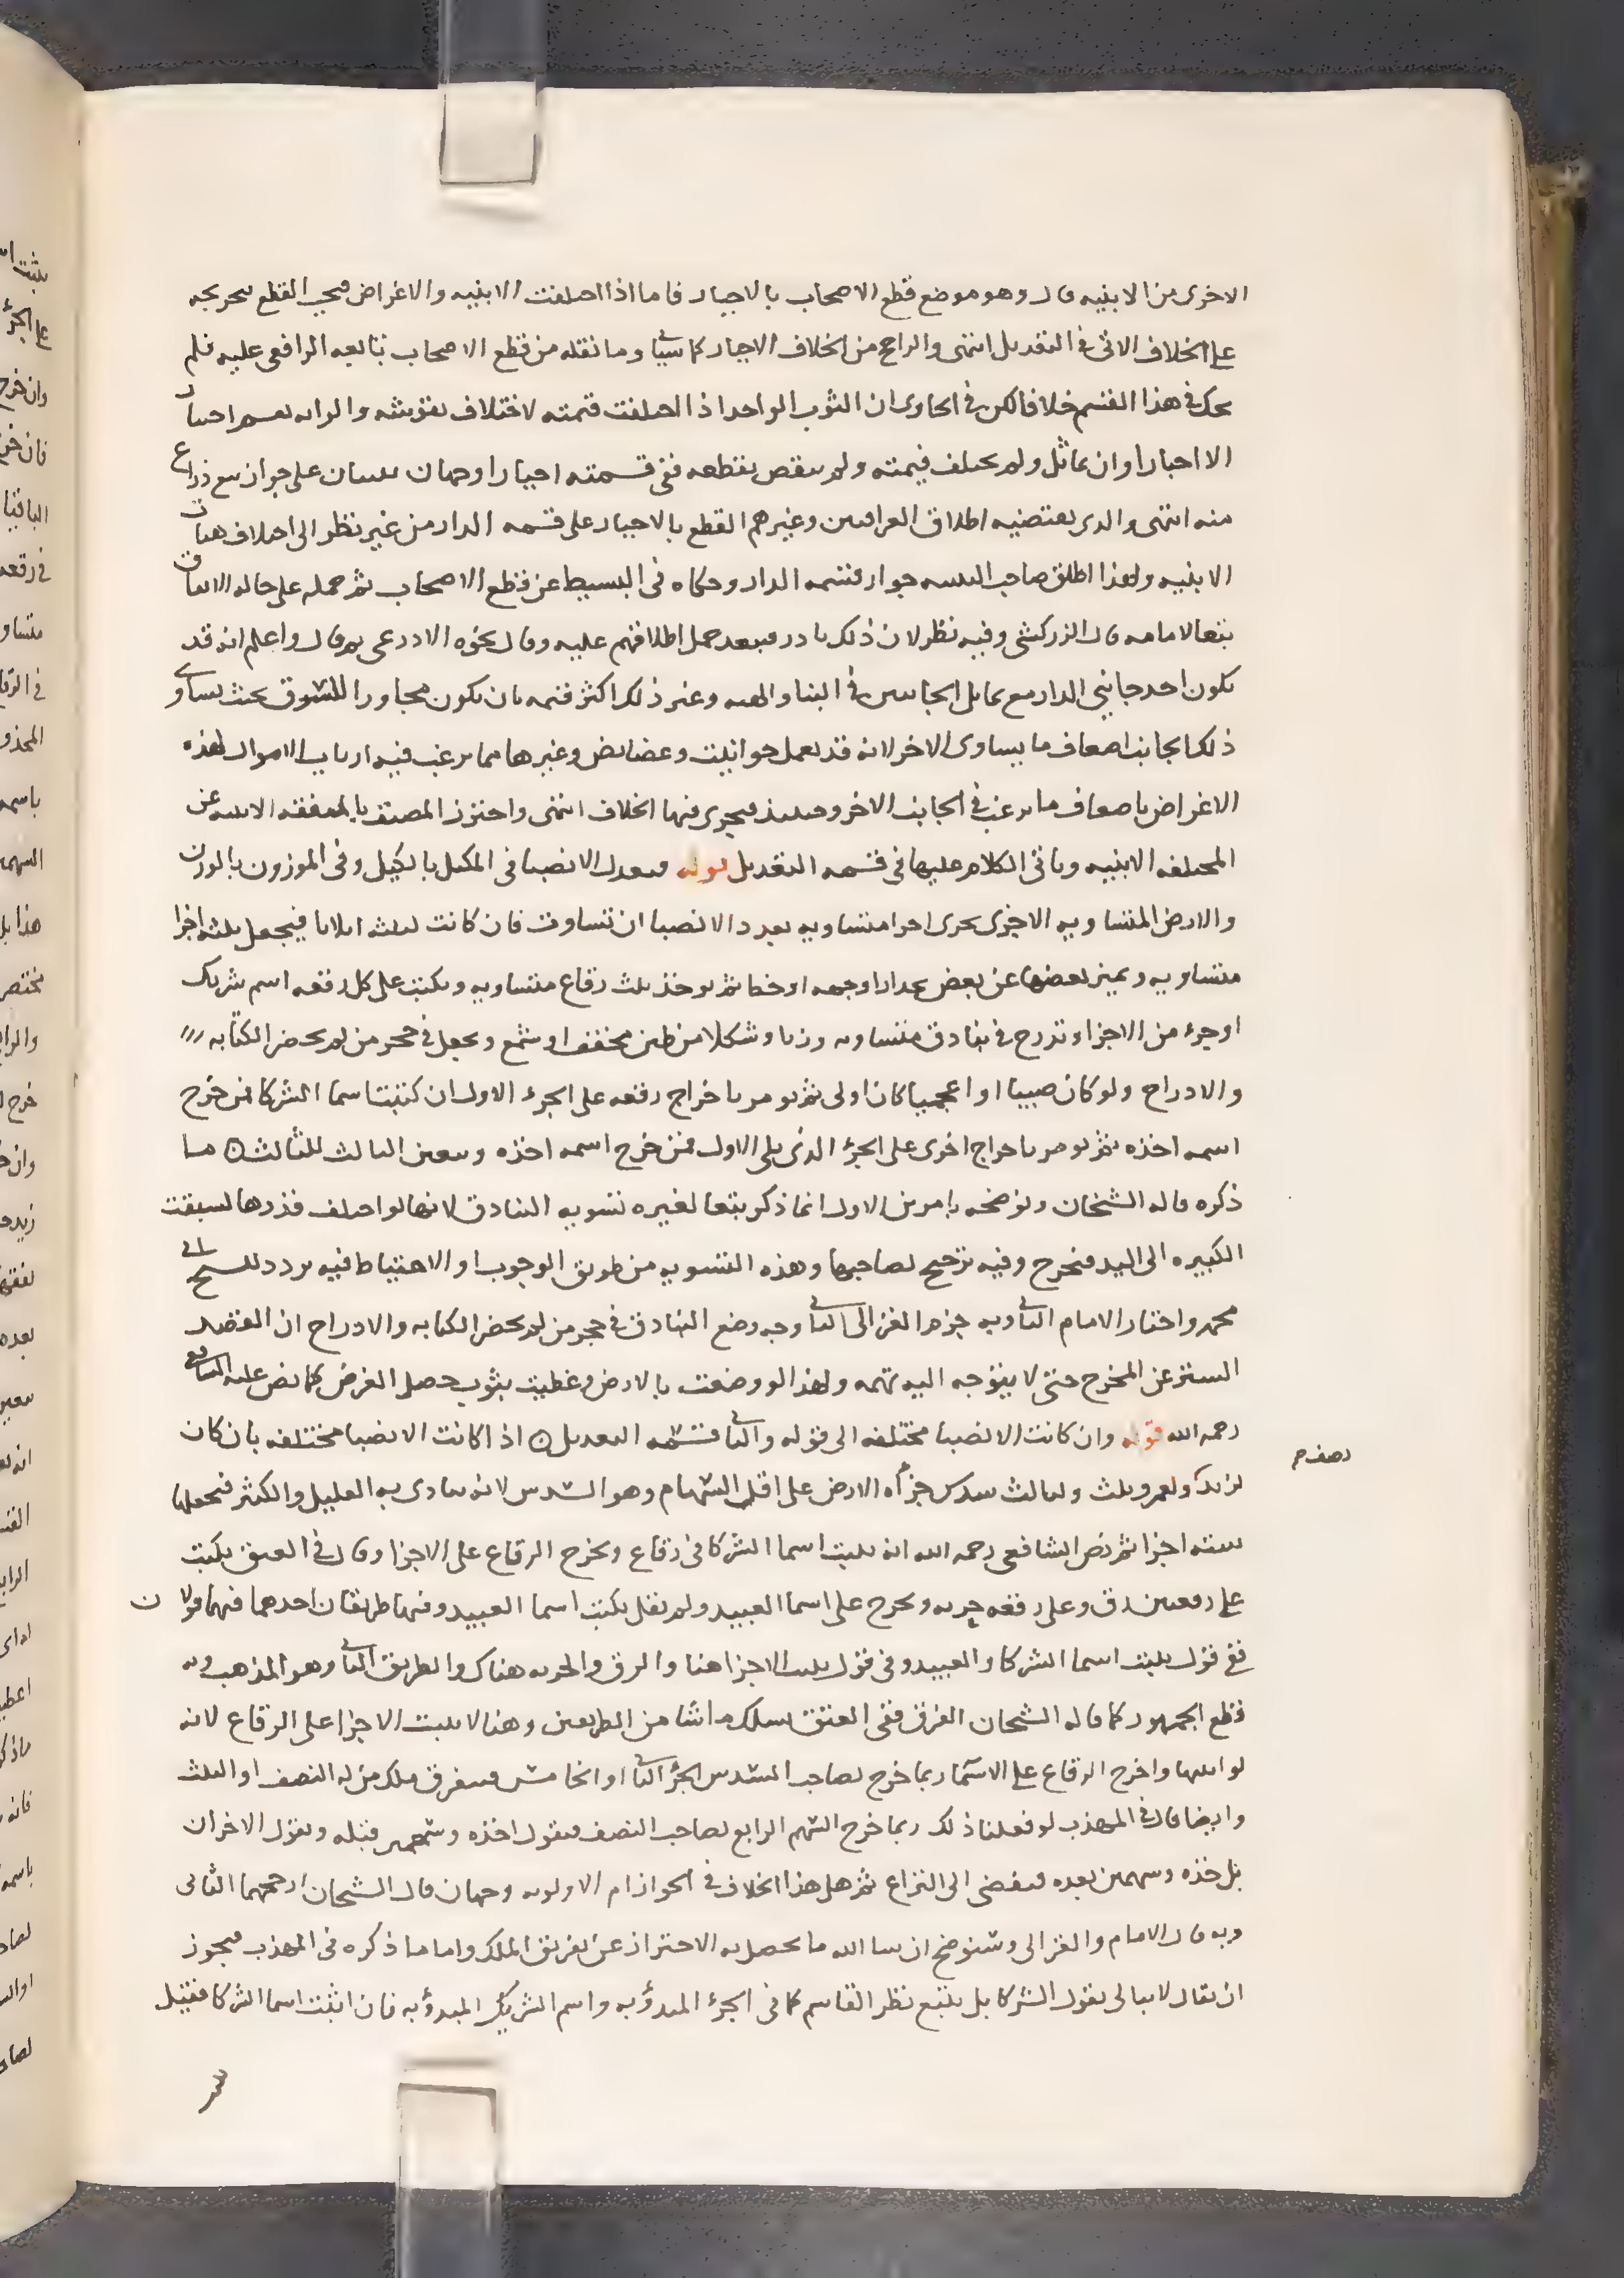 الاخرى من الابنيه قال وهو موضع قطع الاصحاب بالاجبار فاما اذا اختلفت الابنيه والاغراض فيجب القطع بتخريجه
على الخلاف الاتى فى التعديل انتهى والراجح من الخلاف الاجبار كما سياتى وما نقله من قطع الاصحاب تابعه الرافعى عليه فلم
يحك فى هذا القسم خلافا لكن فى الحاوى ان الثوب الواحد اذا اختلفت قيمته لاختلاف نقوشه والوانه لم يقسم اجبارا
الا اجبارا وان تماثل ولم يختلف قيمته ولم ينقص بقطعه ففى قسمته اجبارا وجهان مبنيان على جواز بيع ذراع
منه انتهى والذى يقتضيه اطلاق العراقيين وغيرهم القطع بالاجبار على قسمه الدار من غير نظر الى اختلاف هيات
الابنيه ولهذا اطلق صاحب التنبيه جواز قسمه الدار وحكاه فى البسيط عن قطع الاصحاب ثم حمله على حاله الاتفاق
تبعا لامامه قال الزركشى وفيه نظر لان ذلك نادر فيبعد حمل اطلاقهم عليه وقال نحوه الاذرعى ثم قال واعلم انه قد
يكون احد جانبى الدار مع تماثل الجانبين فى البنا والهيه وغير ذلك اكثر قيمه بان يكون مجاورا للسوق بحيث يساوى
ذلك الجانب اضعاف ما يساوى الاخر لانه قد يعمل حوانيت وعضايض وغيرها مما يرغب فيه ارباب الاموال لهذه
الاغراض باضعاف ما يرغب فى الجانب الاخر وحينئذ فيجرى فيها الخلاف انتهى واحترز المصنف بالمتفقه الابنيه عن
المختلفه الابنيه وياتى الكلام عليها فى قسمه التعديل قوله فيعدل الانصبا فى المكيل بالكيل وفى الموزون بالوزن
والارض المتساويه الاجزى تجزى اجزا متساويه بعدد الانصبا ان تساوت فان كانت لثلثه اثلاثا فيجعل ثلثه اجزا
متساويه ويميز بعضها عن بعض بجدار او جهه او خط ثم يوخذ ثلث رقاع متساويه ويكتب على كل رقعه اسم شريك
او جزء من الاجزا وتدرج فى بنادق متساويه وزنا وشكلا من طين مجفف او شمع ويجعل فى حجر من لم يحضر الكتابه
والادراج ولو كان صبيا او اعجميا كان اولى ثم يومر باخراج رقعه على الجزء الاول ان كتبت اسما الشركا فمن خرج
اسمه اخذه ثم يومر باخراج اخرى على الجزء الذى يلى الاول فمن خرج اسمه اخذه ويتعين الثالث للثالث ما
ذكره قاله الشيخان ونوضحه بامرين الاول انما ذكر تبعا لغيره تسويه البنادق لانها لو اختلف قدرها لسبقت
الكبيره الى اليد فتخرج وفيه ترجيح لصاحبها وهذه التسويه من طريق الوجوب او الاحتياط فيه تردد للشيخ ابى
محمد واختار الامام الثانى وبه جزم الغزالى الثانى وجه وضع البنادق فى حجر من لم يحضر الكتابه والادراج ان القصد
الستر عن المخرج حتى لا يتوجه اليه تهمه ولهذا لو وضعت بالارض وغطيت بثوب حصل الغرض كما نص عليه الشافعى
رحمه الله قوله وان كانت الانصبا مختلفه الى قوله والثانى قسمه التعديل اذا كانت الانصبا مختلفه بان كان
نصف
لزيد ولعمرو ثلث ولثالث سدس جزاه الارض على اقل السهام وهو السدس لانه يتادى به القليل والكثير فنجعلها
سته اجزا ثم نص الشافعى رحمه الله انه يثبت اسما الشركا فى رقاع ويخرج الرقاع على الاجزا وقال فى العتق يكتب
على رقعتين رق وعلى رقعه حريه ويخرج على اسما العبيد ولم يقل يكتب اسما العبيد وفيها طريقان احدهما فيهما قولان
ففى قول يثبت اسما الشركا والعبيد وفى قول يثبت الاجزا هنا والرق والحريه هناك والطريق الثانى وهو المذهب وبه
قطع الجمهور كما قاله الشيخان الفرق ففى العتق يسلك ما شا من الطريقين وهنا لا يثبت الاجزا على الرقاع لانه
لو اثبتها واخرج الرقاع على الاسما ربما خرج لصاحب السدس الجزء الثانى او الخامس فيفرق ملك من له النصف او الثلث
وايضا قال فى المهذب لو فعلنا ذلك ربما خرج السهم الرابع لصاحب النصف فيقول اخذه وسهمين قبله ويقول الاخران
بل خذه وسهمين بعده فيفضى الى النزاع ثم هل هذا الخلاف فى الجواز ام الاولويه وجهان قال الشيخان ارجحهما الثانى
وبه قال الامام والغزالى وسنوضح ان شا الله ما يحصل به الاحتراز عن تفريق الملك واما ما ذكره فى المهذب فيجوز
ان يقال لا يبالى بقول الشركا بل يتبع نظر القاسم كما فى الجزء المبدؤ به واسم الشريك المبدؤ به فان اثبت اسما الشركا فقيل